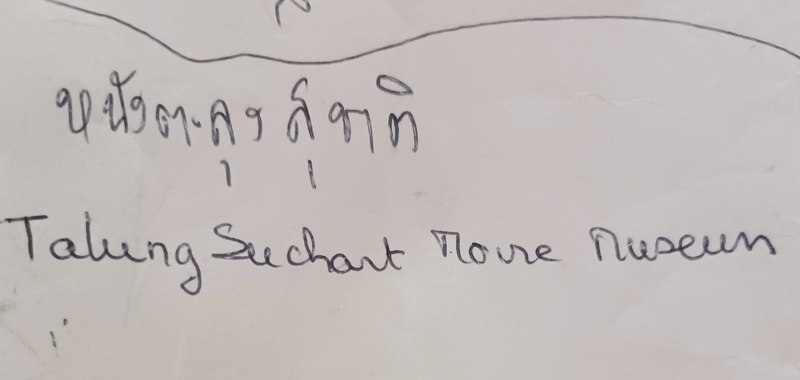 หนังตะลุง สุชาติ
Talung Suchart Movie Museum